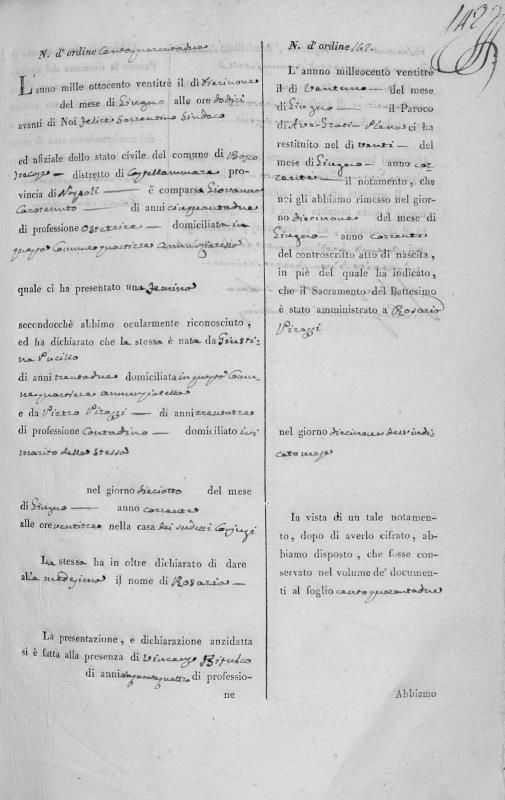 142
N. d'ordine Centoquarantadue
L'anno mille ottocento ventitrè il dì diecinove
del mese di Giugno alle ore dodici
avanti di Noi Felice Sorrentino Sindaco
ed ufiziale dello stato civile del comune di Bosco
trecase distretto di Castellammare pro-
vincia di Napoli è comparsa Giovanna
Carotenuto di anni cinquantadue
di professione Ostetrice domiciliata in
questo Comune quartiere Annunziatella
quale ci ha presentato una femina
secondocchè abbimo ocularmente riconosciuto,
ed ha dichiarato che la stessa è nata da Giusti-
na Pucillo
di anni trentadue domiciliata in questo Comu-
ne quartiere annunziatella
e da Pietro Pirozzi di anni trentatre
di professione Contadino domiciliato ivi
marito della stessa
nel giorno dieciotto del mese
di Giugno anno corrente
alle ore ventitre nella casa dei sudetti Conjugi
La stessa ha in oltre dichiarato di dare
alla medesima il nome di Rosaria
La presentazione, e dichiarazione anzidatta
si è fatta alla presenza di Vincenzo Bifulco
di anni cinquantaquattro di professio-
ne
N. d'ordine 142.
L'annno milleocento ventitrè
il dì ventuno del mese
di Giugno il Paroco
di Ave Grati Plena ci ha
restituito nel dì venti del
mese di Giugno anno cor-
rente il notamento, che
noi gli abbiamo rimesso nel gior-
no diecinove del mese di
Giugno anno corrente
del controscritto atto di nascita,
in piè del quale ha indicato,
che il Sacramento del Battesimo
è stato amministrato a Rosaria
Pirozzi
nel giorno diecinove dell'indi-
cato mese
In vista di un tale notamen-
to, dopo di averlo cifrato, ab-
biamo disposto, che fosse con-
servato nel volume de' documen-
ti al foglio centoquarantadue
Abbiamo